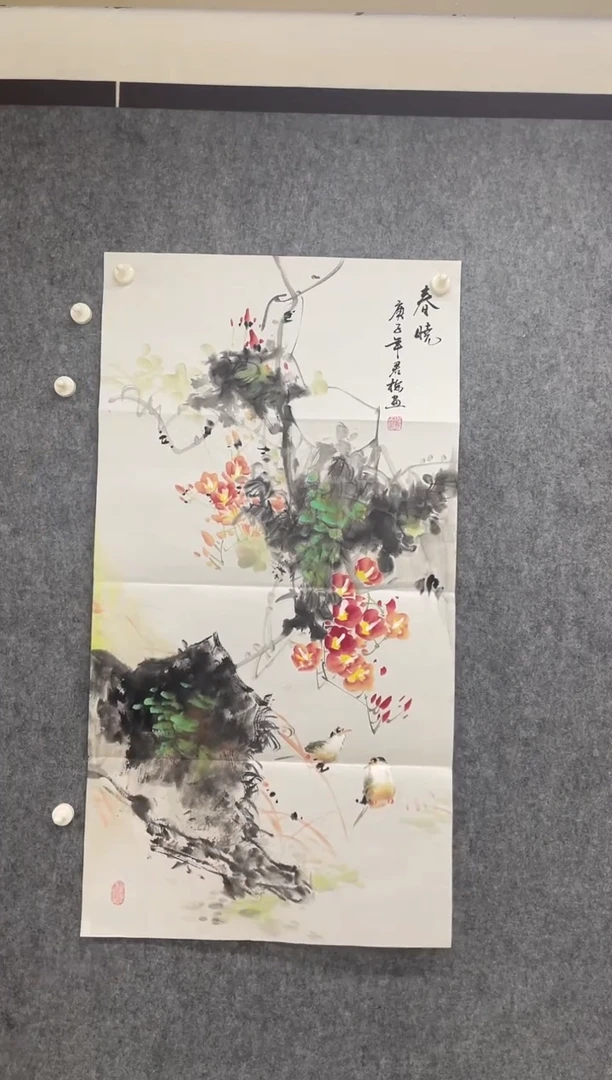 春曉
庚子年君梅画